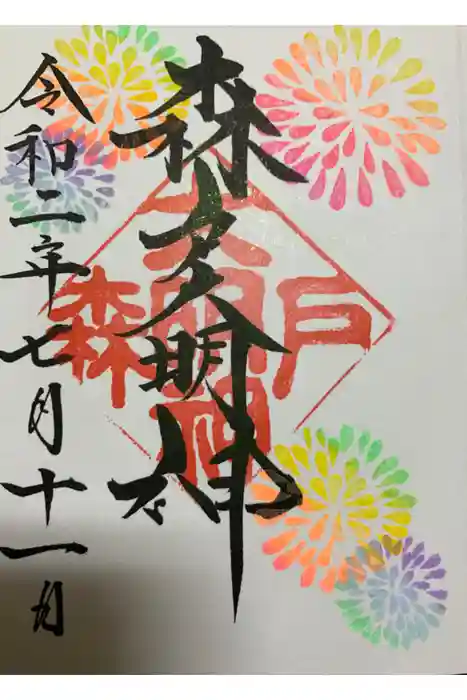 森大明神
戸
大明神
森
令和二年七月十一日